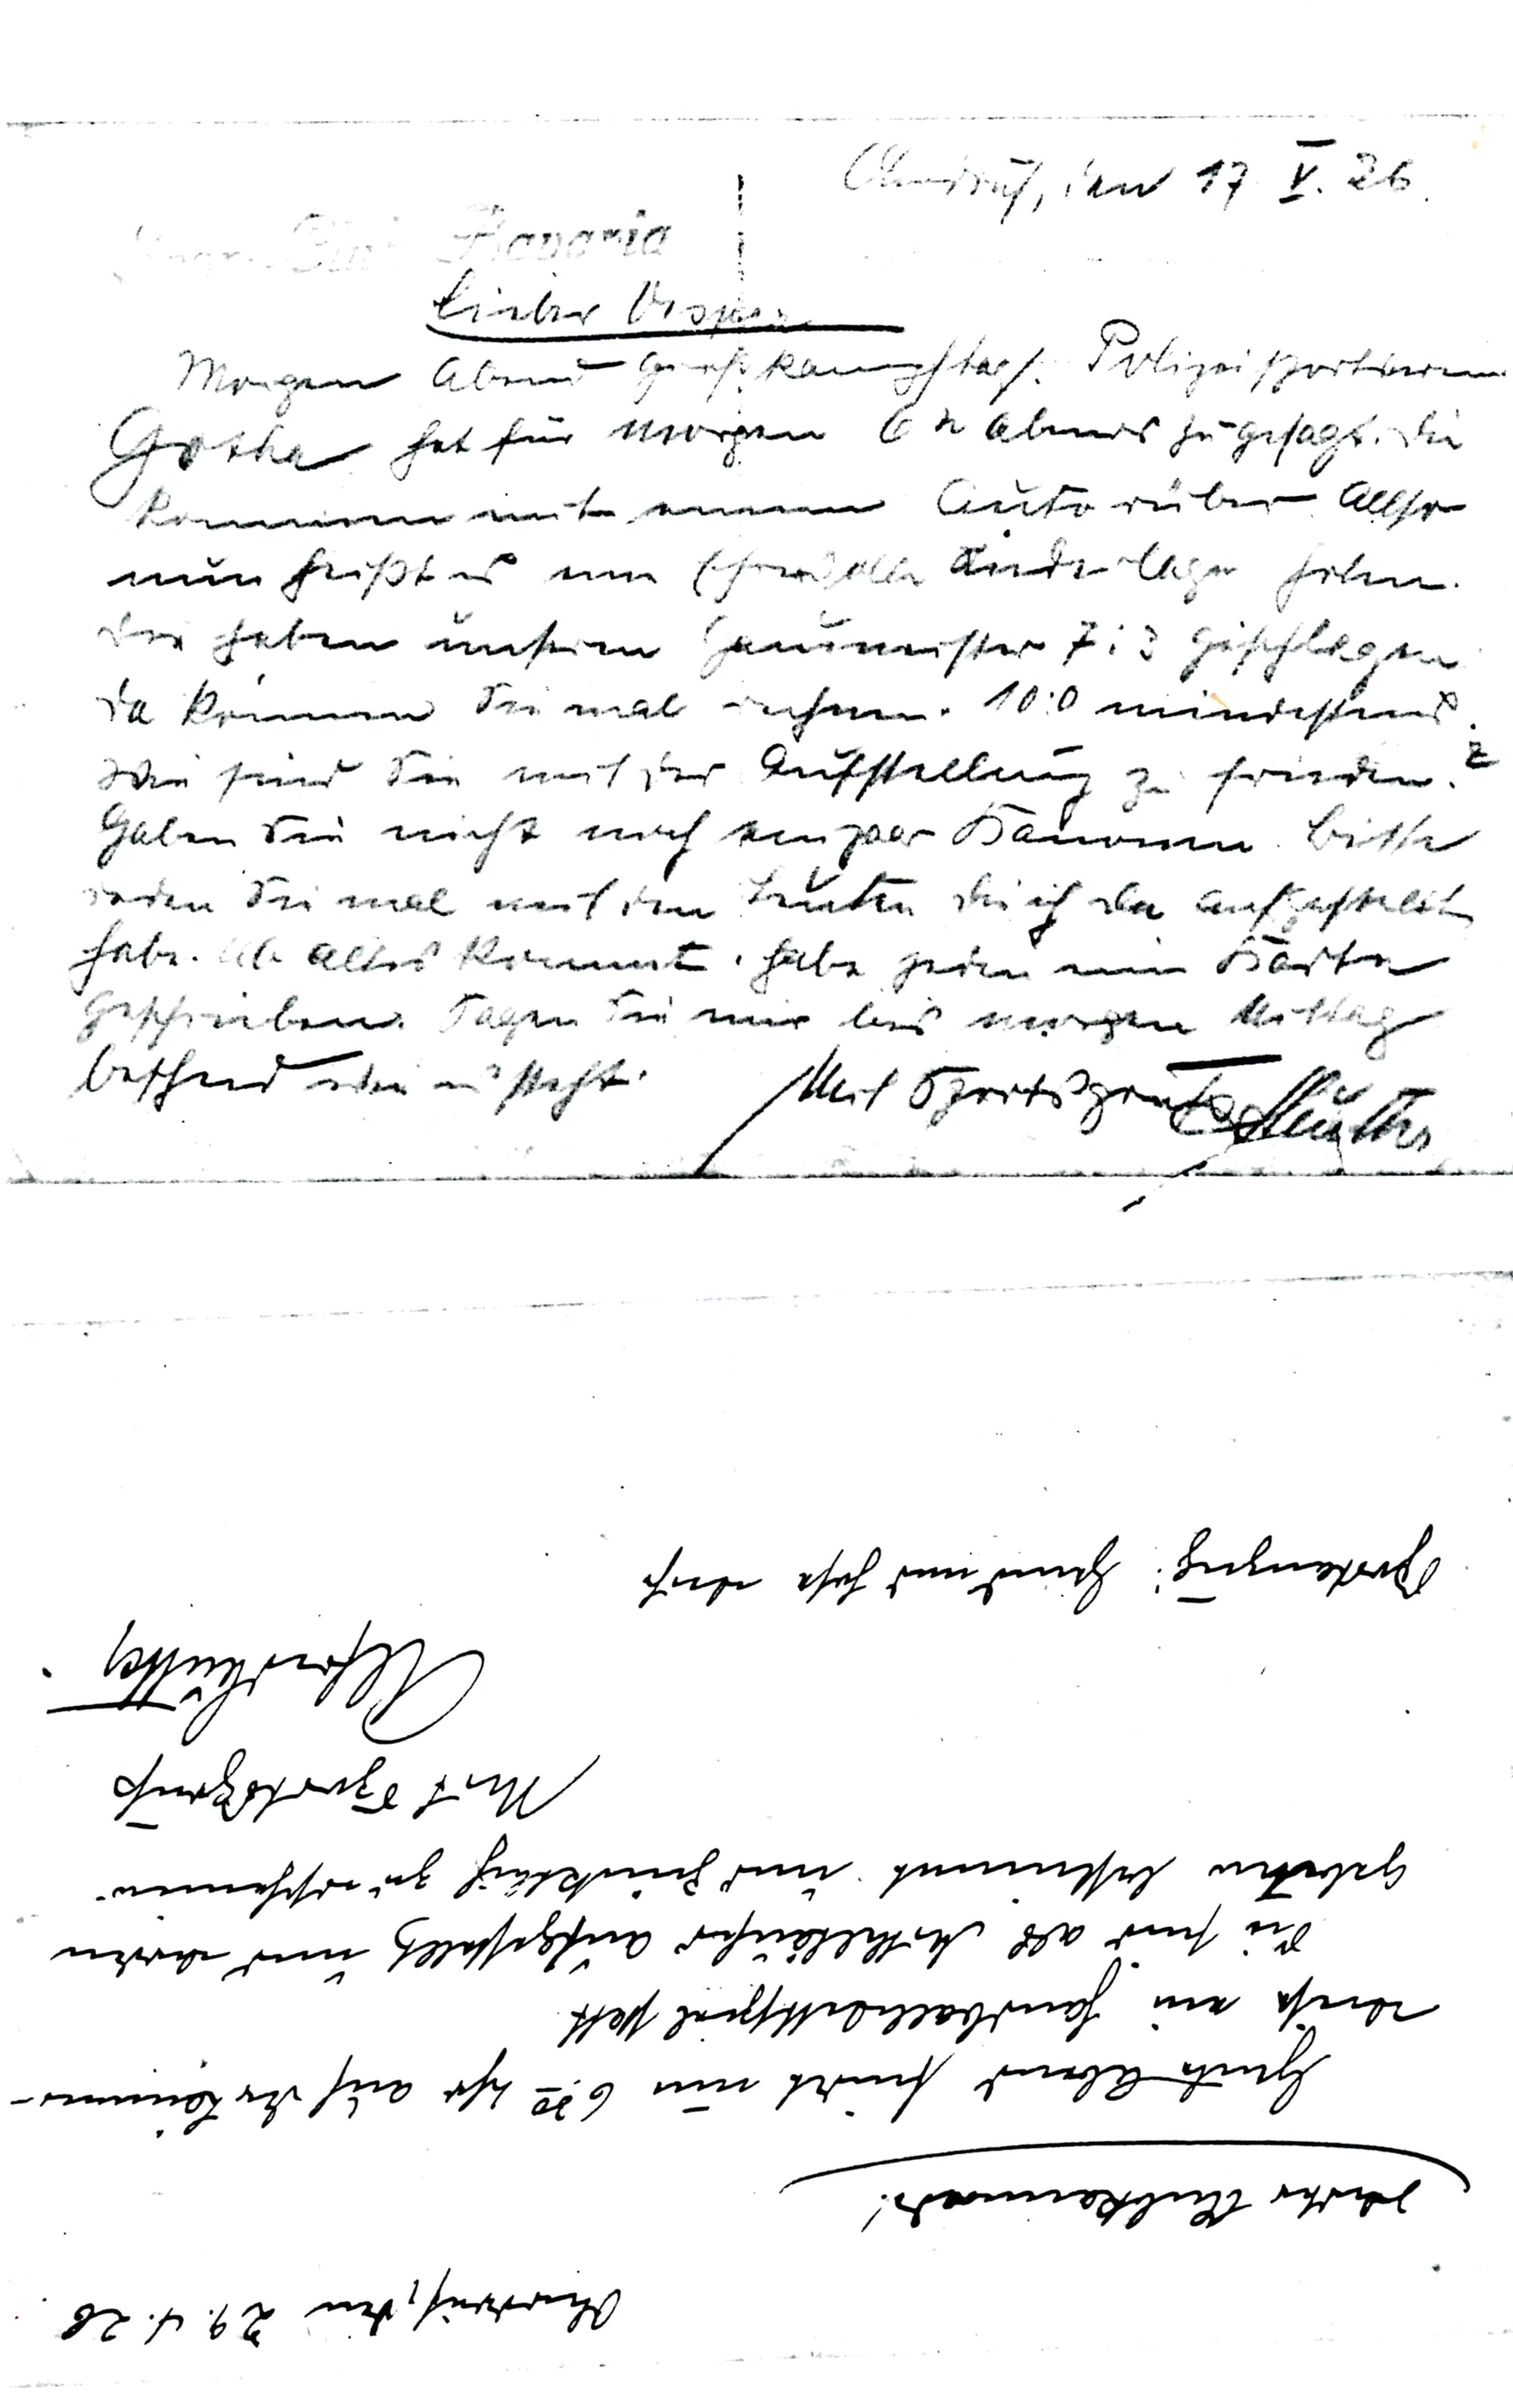 Ohrdruf, den 17. V. 26.
Bavaria
Lieber
Morgen Abend Großkampftag! Polizeisportverein
Gotha hat für morgen 6 h abends zugesagt. Die
kommen mit einem Auto rüber. Allso
nun heißt es eine Niederlage holen.
Die haben unseren Gaumeister 7:3 geschlagen
da können Sie mal rechnen. 10:0 mindestens.
Wie sind Sie mit der Aufstellung zu frieden.?
Haben Sie nicht noch ein paar Kanonen. Bitte
reden Sie mal mit den Leuten die ich da aufgestellt
habe. Ob alles kommt. habe jeden eine Karte
geschrieben. Sagen Sie mir bis morgen Mittag
bescheid wie es steht.
Mit Sportsgruß
Ohrdruf, den 29. 4. 26
Werter Klubkamerad!
Heute Abend findet um 6.30 Uhr auf der
wiese ein Handballwettspiel statt.
Sie sind als Mittelläufer aufgestellt und werden
gebeten bestimmt und pünktlich zu erscheinen.
Mit Sportsgruß
Sportanzug: Hemd und Hose weiß